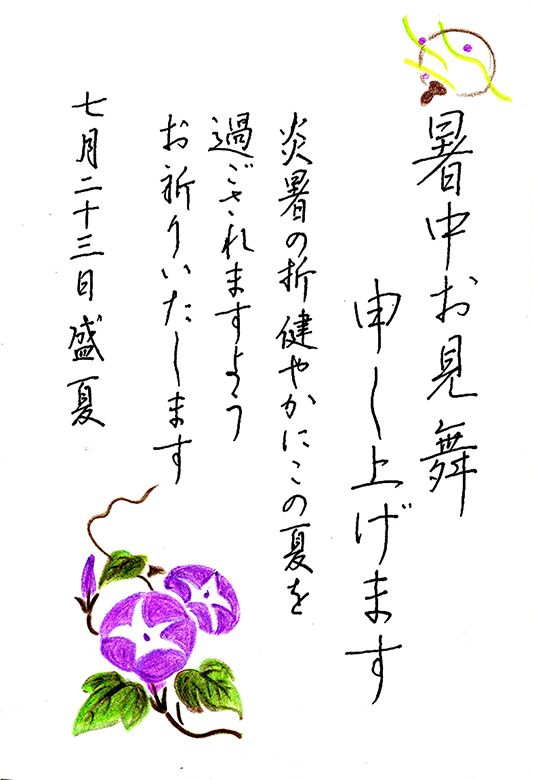 暑中お見舞
申し上げます
炎暑の折健やかにこの夏を
過ごされますよう
お祈りいたします
七月二十三日盛夏